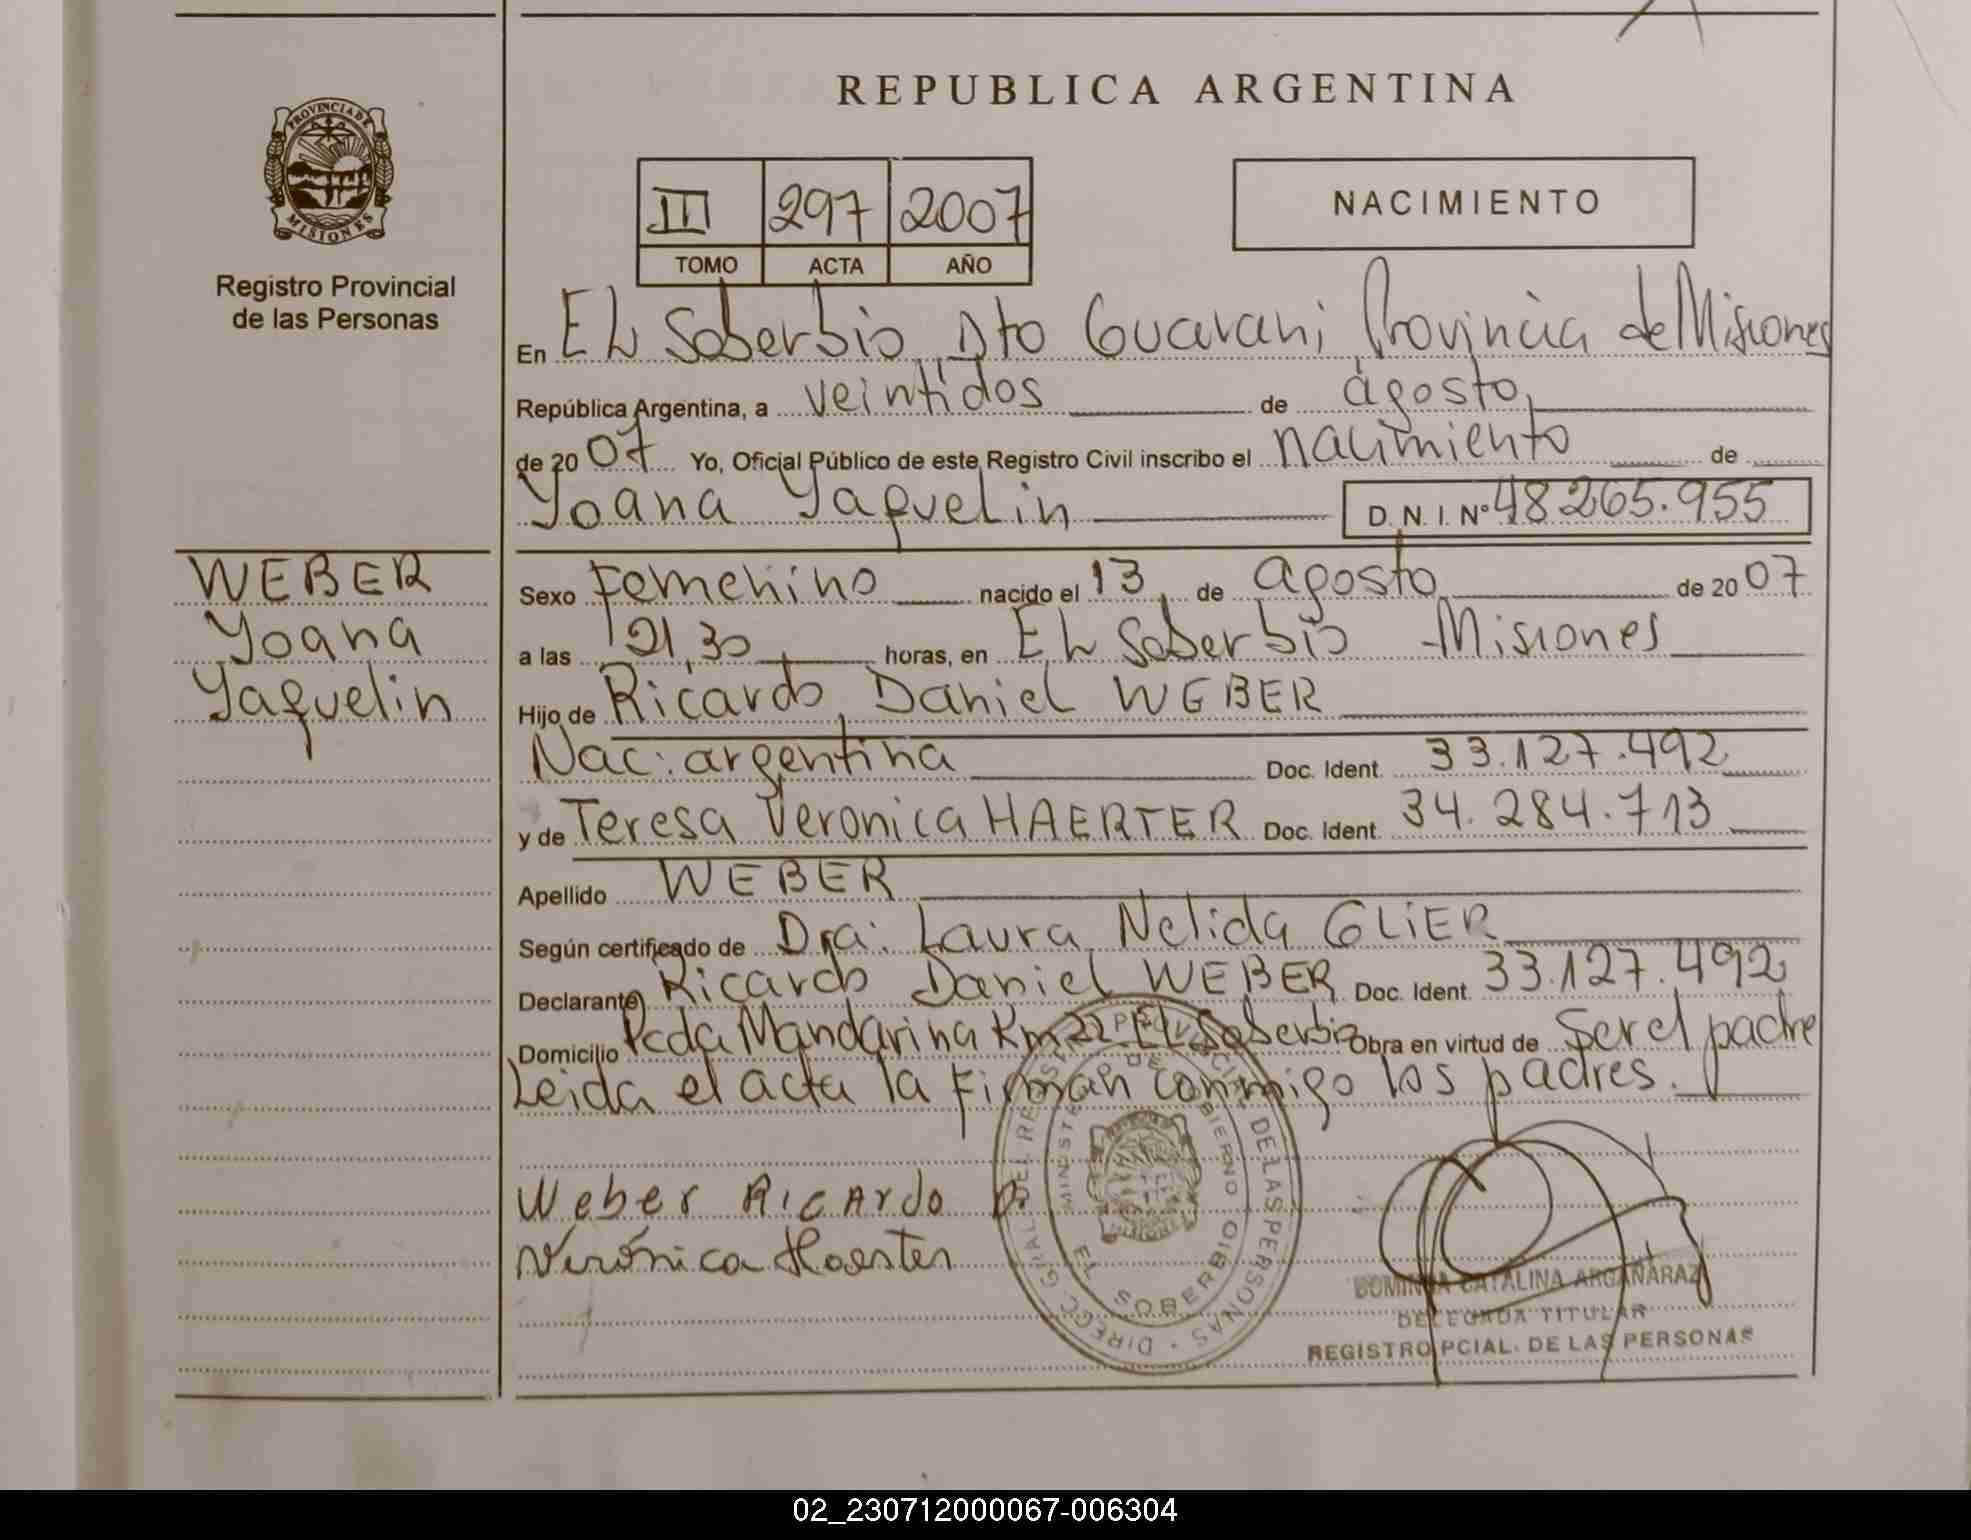 REPUBLICA ARGENTINA
PROVINCIA DE MISIONES
Registro Provincial
de las Personas
III 297 2007
TOMO ACTA AÑO
NACIMIENTO
En EL Soberbio Dto Guarani Provincia de Misiones
República Argentina, a veintidos de agosto
de 2007 Yo, Oficial Público de este Registro Civil inscribo el nacimiento de
Yoana Yaquelin D. N. I. Nº 48.265.955
WEBER
Yoana
Yaquelin
Sexo Femenino nacido el 13 de agosto de 2007
a las 21,30 horas, en EL Soberbio Misiones
Hijo de Ricardo Daniel WEBER
Nac: argentina Doc. Ident. 33.127.492
y de Teresa Veronica HAERTER Doc. Ident. 34.284.713
Apellido WEBER
Según certificado de Dra: Laura Nelida GLIER
Declarante Ricardo Daniel WEBER Doc. Ident. 33.127.492
Domicilio Pcda Mandarina Km 22 EL Soberbio Obra en virtud de Ser el padre
Leida el acta la Firman conmigo los padres.
Weber RICARdo D.
Verónica Haerter
DIRECC. GRAL DEL REGIST. PROVINCIAL DE LAS PERSONAS
MINISTERIO DE GOBIERNO
EL SOBERBIO
DOMINGA CATALINA ARGAÑARAZ
DELEGADA TITULAR
REGISTRO PCIAL. DE LAS PERSONAS
02_230712000067-006304